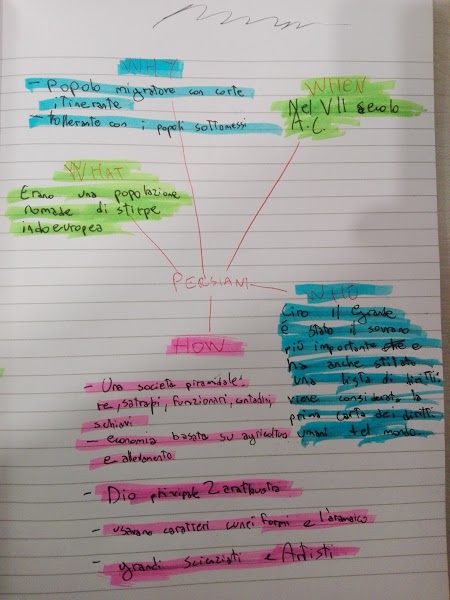 WHY
- POPOLO migratore con corte
itinerante
- tollerante con i popoli sottomessi
WHEN
Nel VII secolo
A.C.
WHAT
Erano una popolazione
nomade di stirpe
indoeuropea
PERSIANI
WHO
Ciro il Grande
è stato il sovrano
più importante e
ha anche stilato
una lista di diritti
viene considerata la
prima carta dei diritti
umani del mondo
HOW
- Una società piramidale:
re, satrapi, funzionari, contadini,
schiavi
- economia basata su agricoltura
e allevamento
- Dio principale Zarathustra
- usavano caratteri cuneiformi e l'aramaico
- grandi scienziati e Artisti